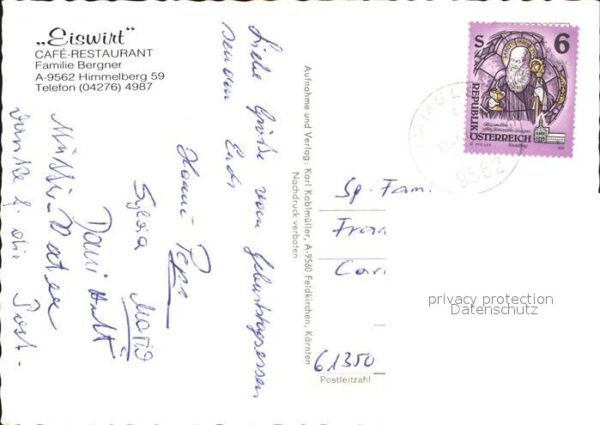 „Eiswirt“
CAFÉ-RESTAURANT
Familie Bergner
A-9562 Himmelberg 59
Telefon (04276) 4987
Liebe Grüße vom Geburtstagsessen
senden Euch
Hanni Pepo
Sylvia Mario
Danke f. die Post.
Aufnahme und Verlag: Karl Kablmüller, A-9560 Feldkirchen, Kärnten
Nachdruck verboten
S 6
REPUBLIK
ÖSTERREICH
9562
Sp. Fam.
Fran
Car
61350
Postleitzahl
privacy protection
Datenschutz